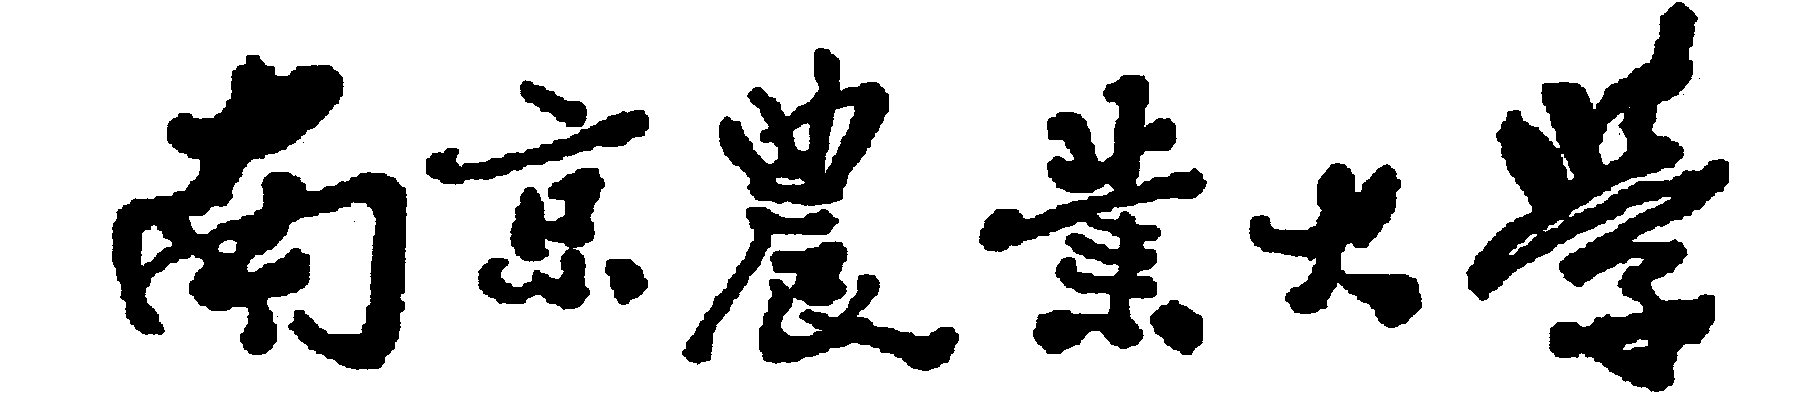 南京農業大学